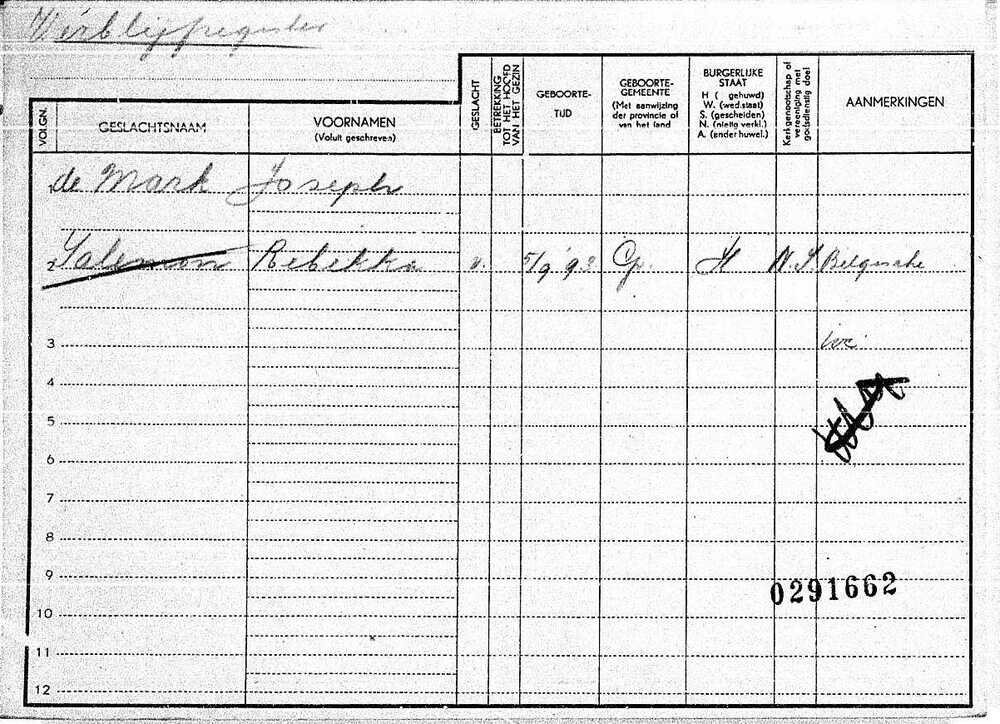 Verblijfregister
VOLGN.
GESLACHTSNAAM
VOORNAMEN
(Voluit geschreven)
GESLACHT
BETREKKING
TOT HET HOOFD
VAN HET GEZIN
GEBOORTE-
TIJD
GEBOORTE-
GEMEENTE
(Met aanwijzing
der provincie of
van het land
BURGERLIJKE
STAAT
H ( gehuwd)
W. (wed.staat)
S. (gescheiden)
N. (nietig verkl.)
A. (ander huwel.)
Kerkgenootschap of
vereeniging met
godsdienstig doel
AANMERKINGEN
1 de Mark Joseph
2 Salemon Rebekka v. 5/9 '93 H N.I. Belgische
3
4
5
6
7
8
9
0291662
10
11
12